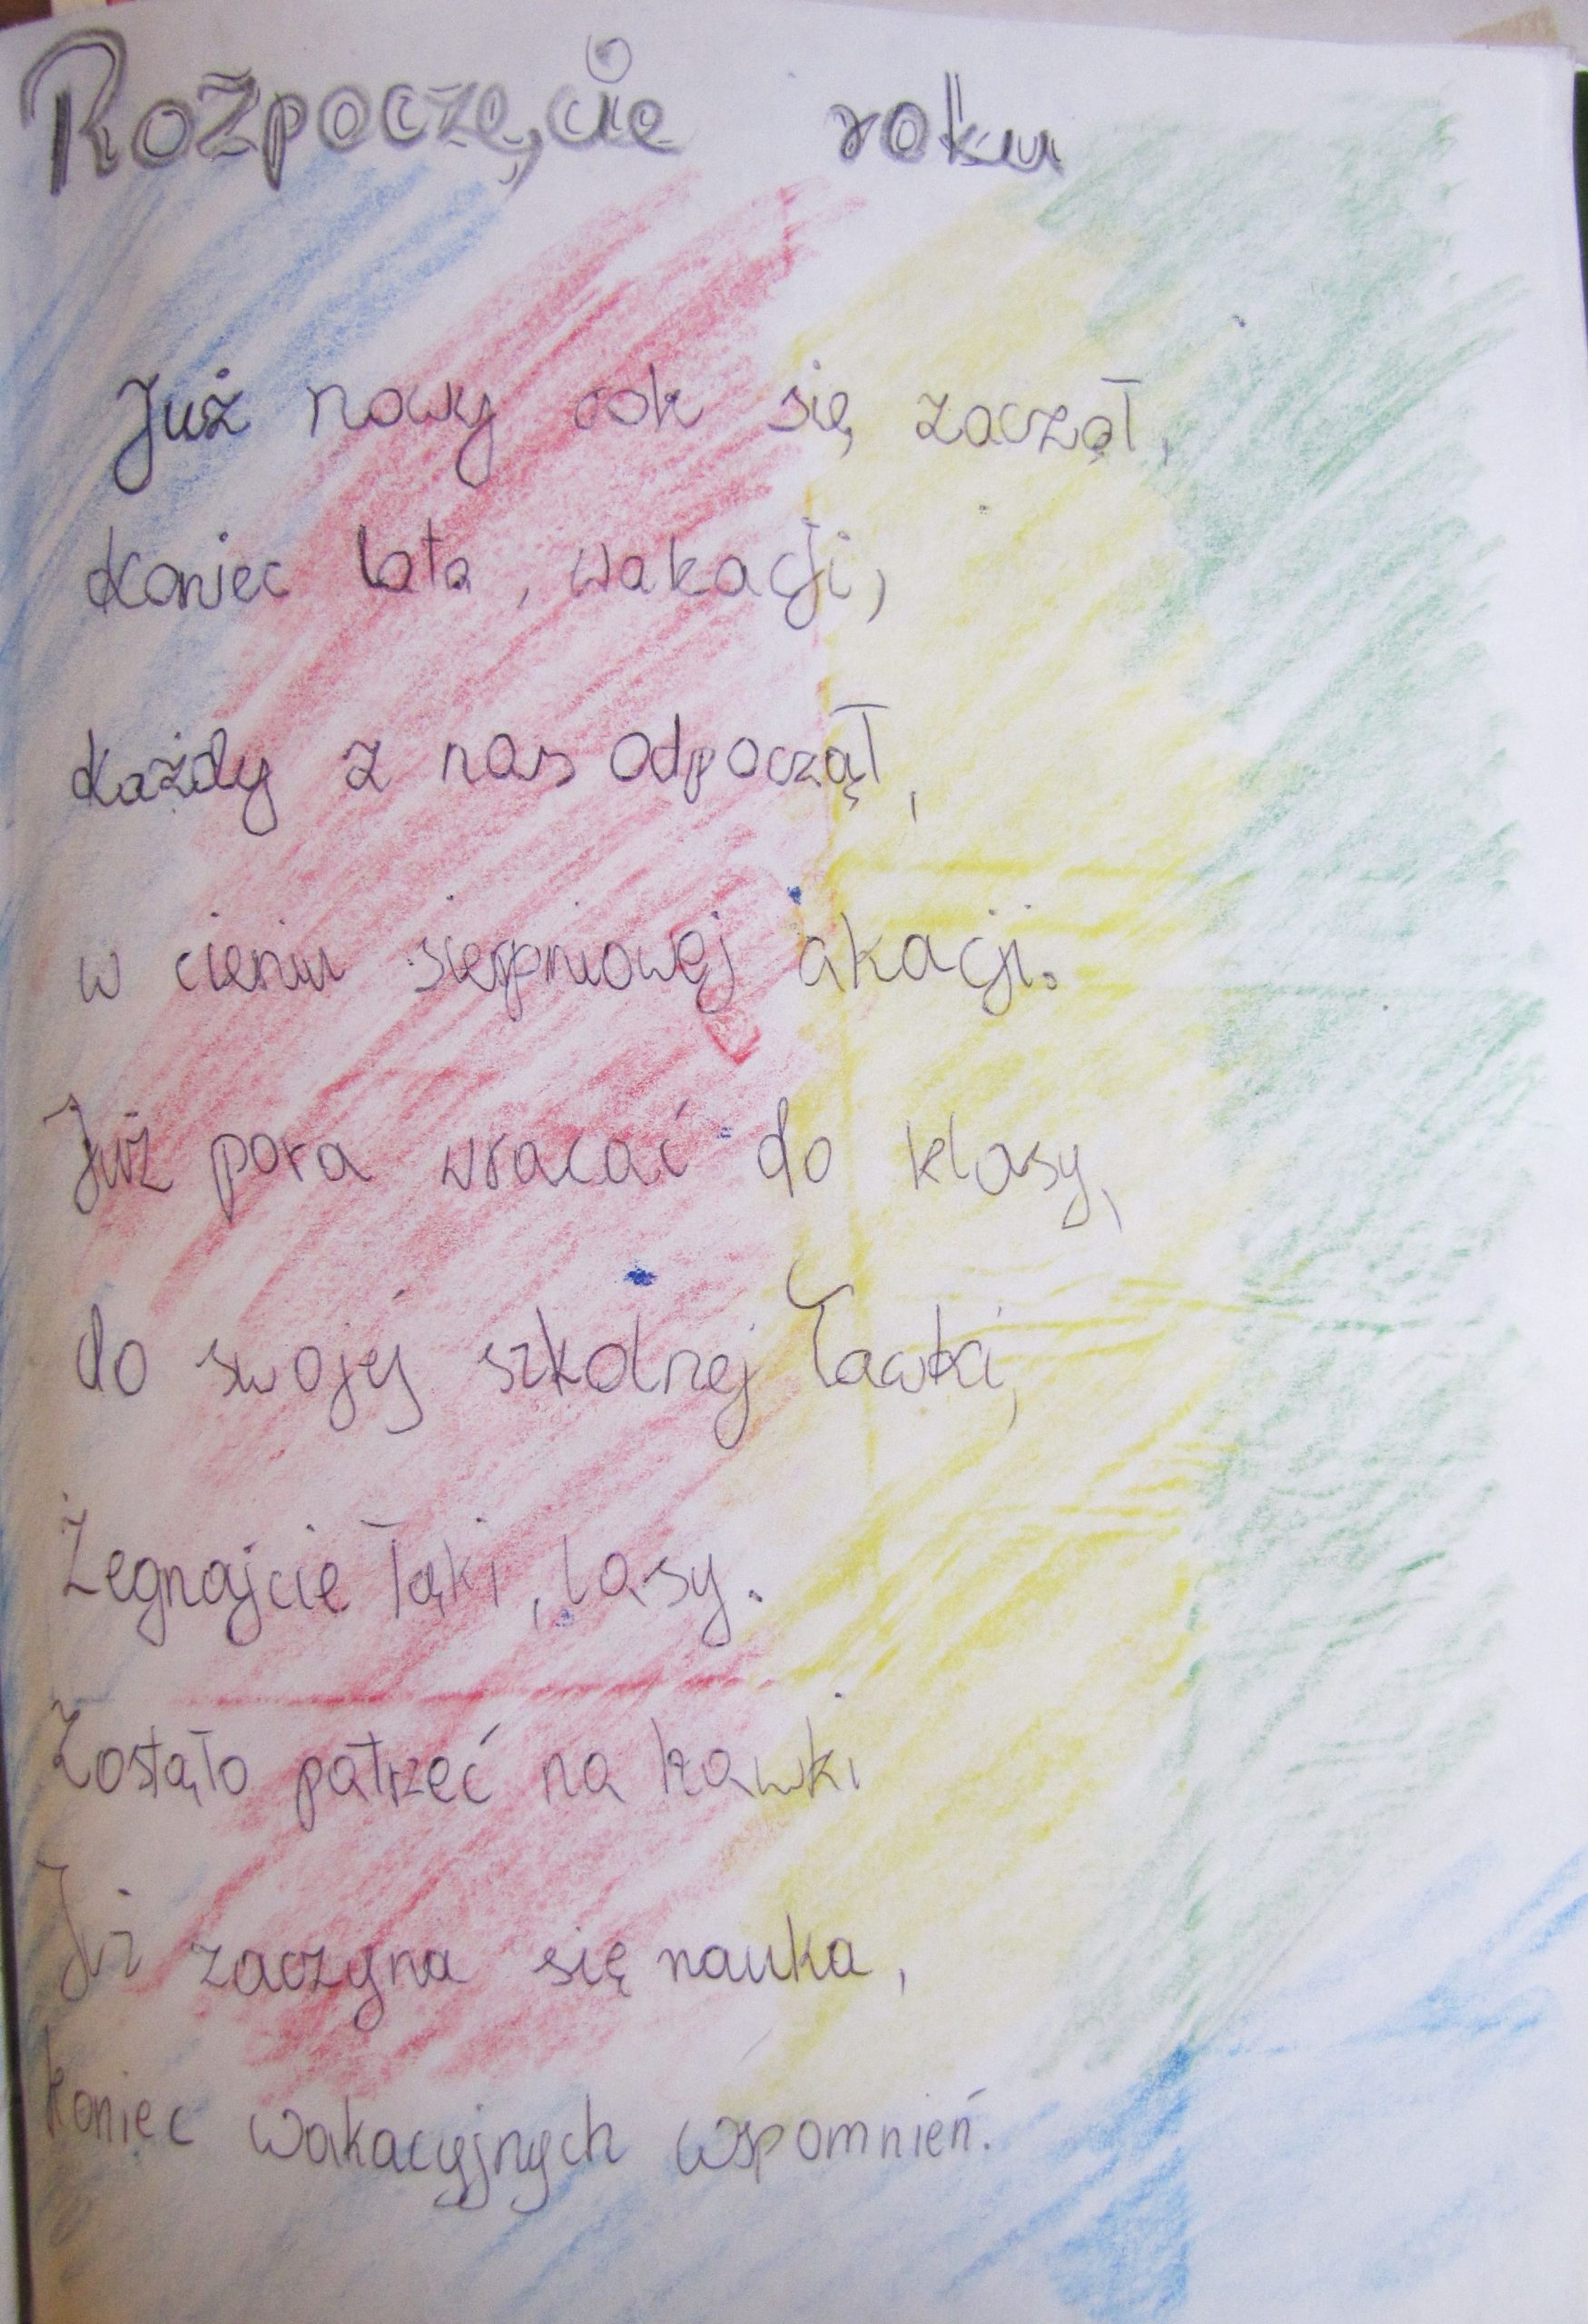 Rozpoczęcie roku
Już nowy rok się zaczął,
Koniec lata, wakacji,
Każdy z nas odpoczął,
w cieniu sierpniowej akacji.
Już pora wracać do klasy,
do swojej szkolnej ławki,
Żegnajcie łąki, lasy.
Zostało patrzeć na kawki
I zaczyna się nauka,
koniec wakacyjnych wspomnień.